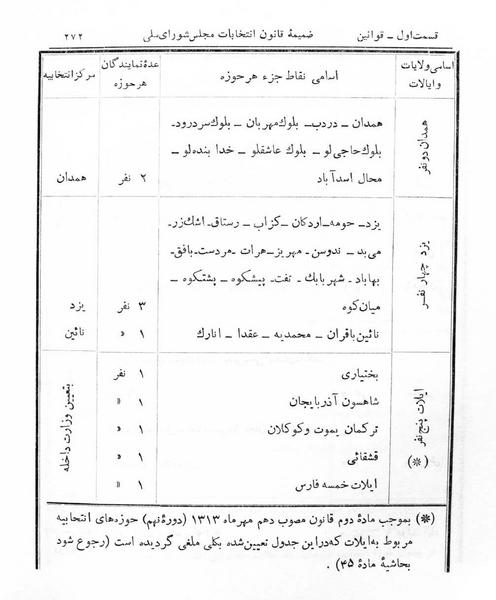 قسمت اول ـ قوانین ضمیمهٔ قانون انتخابات مجلس شورای ملی ۲۷۲
اسامی ولایات و ایالات اسامی نقاط جزء هر حوزه عدهٔ نمایندگان هر حوزه مرکز انتخابیه
همدان دو نفر
همدان ـ دردب ـ بلوك مهربان ـ بلوك سردرود ـ
بلوك حاجی لو ـ بلوك عاشقلو ـ خدا بنده لو ـ
محال اسدآباد ۲ نفر همدان
یزد چهار نفر
یزد ـ حومه ـ اردکان ـ کزاب ـ رستاق ـ اشك زر ـ
می بد ـ ندوسن ـ مهریز ـ هرات ـ مردست ـ بافق ـ
بهاباد ـ شهر بابك ـ تفت ـ پیشکوه ـ پشتکوه ـ
میان کوه ۳ نفر یزد
نائین باقران ـ محمدیه ـ عقدا ـ انارك ۱ » نائین
ایلات پنج نفر (*)
بختیاری ۱ نفر
شاهسون آذربایجان ۱ »
ترکمان یموت و کوکلان ۱ »
قشقائی ۱ »
ایلات خمسه فارس ۱ »
بتعیین وزارت داخله
(*) بموجب مادهٔ دوم قانون مصوب دهم مهرماه ۱۳۱۳ (دورهٔ نهم) حوزه های انتخابیه
مربوط به ایلات که در این جدول تعیین شده بکلی ملغی گردیده است (رجوع شود
بحاشیهٔ مادهٔ ۴۵) .